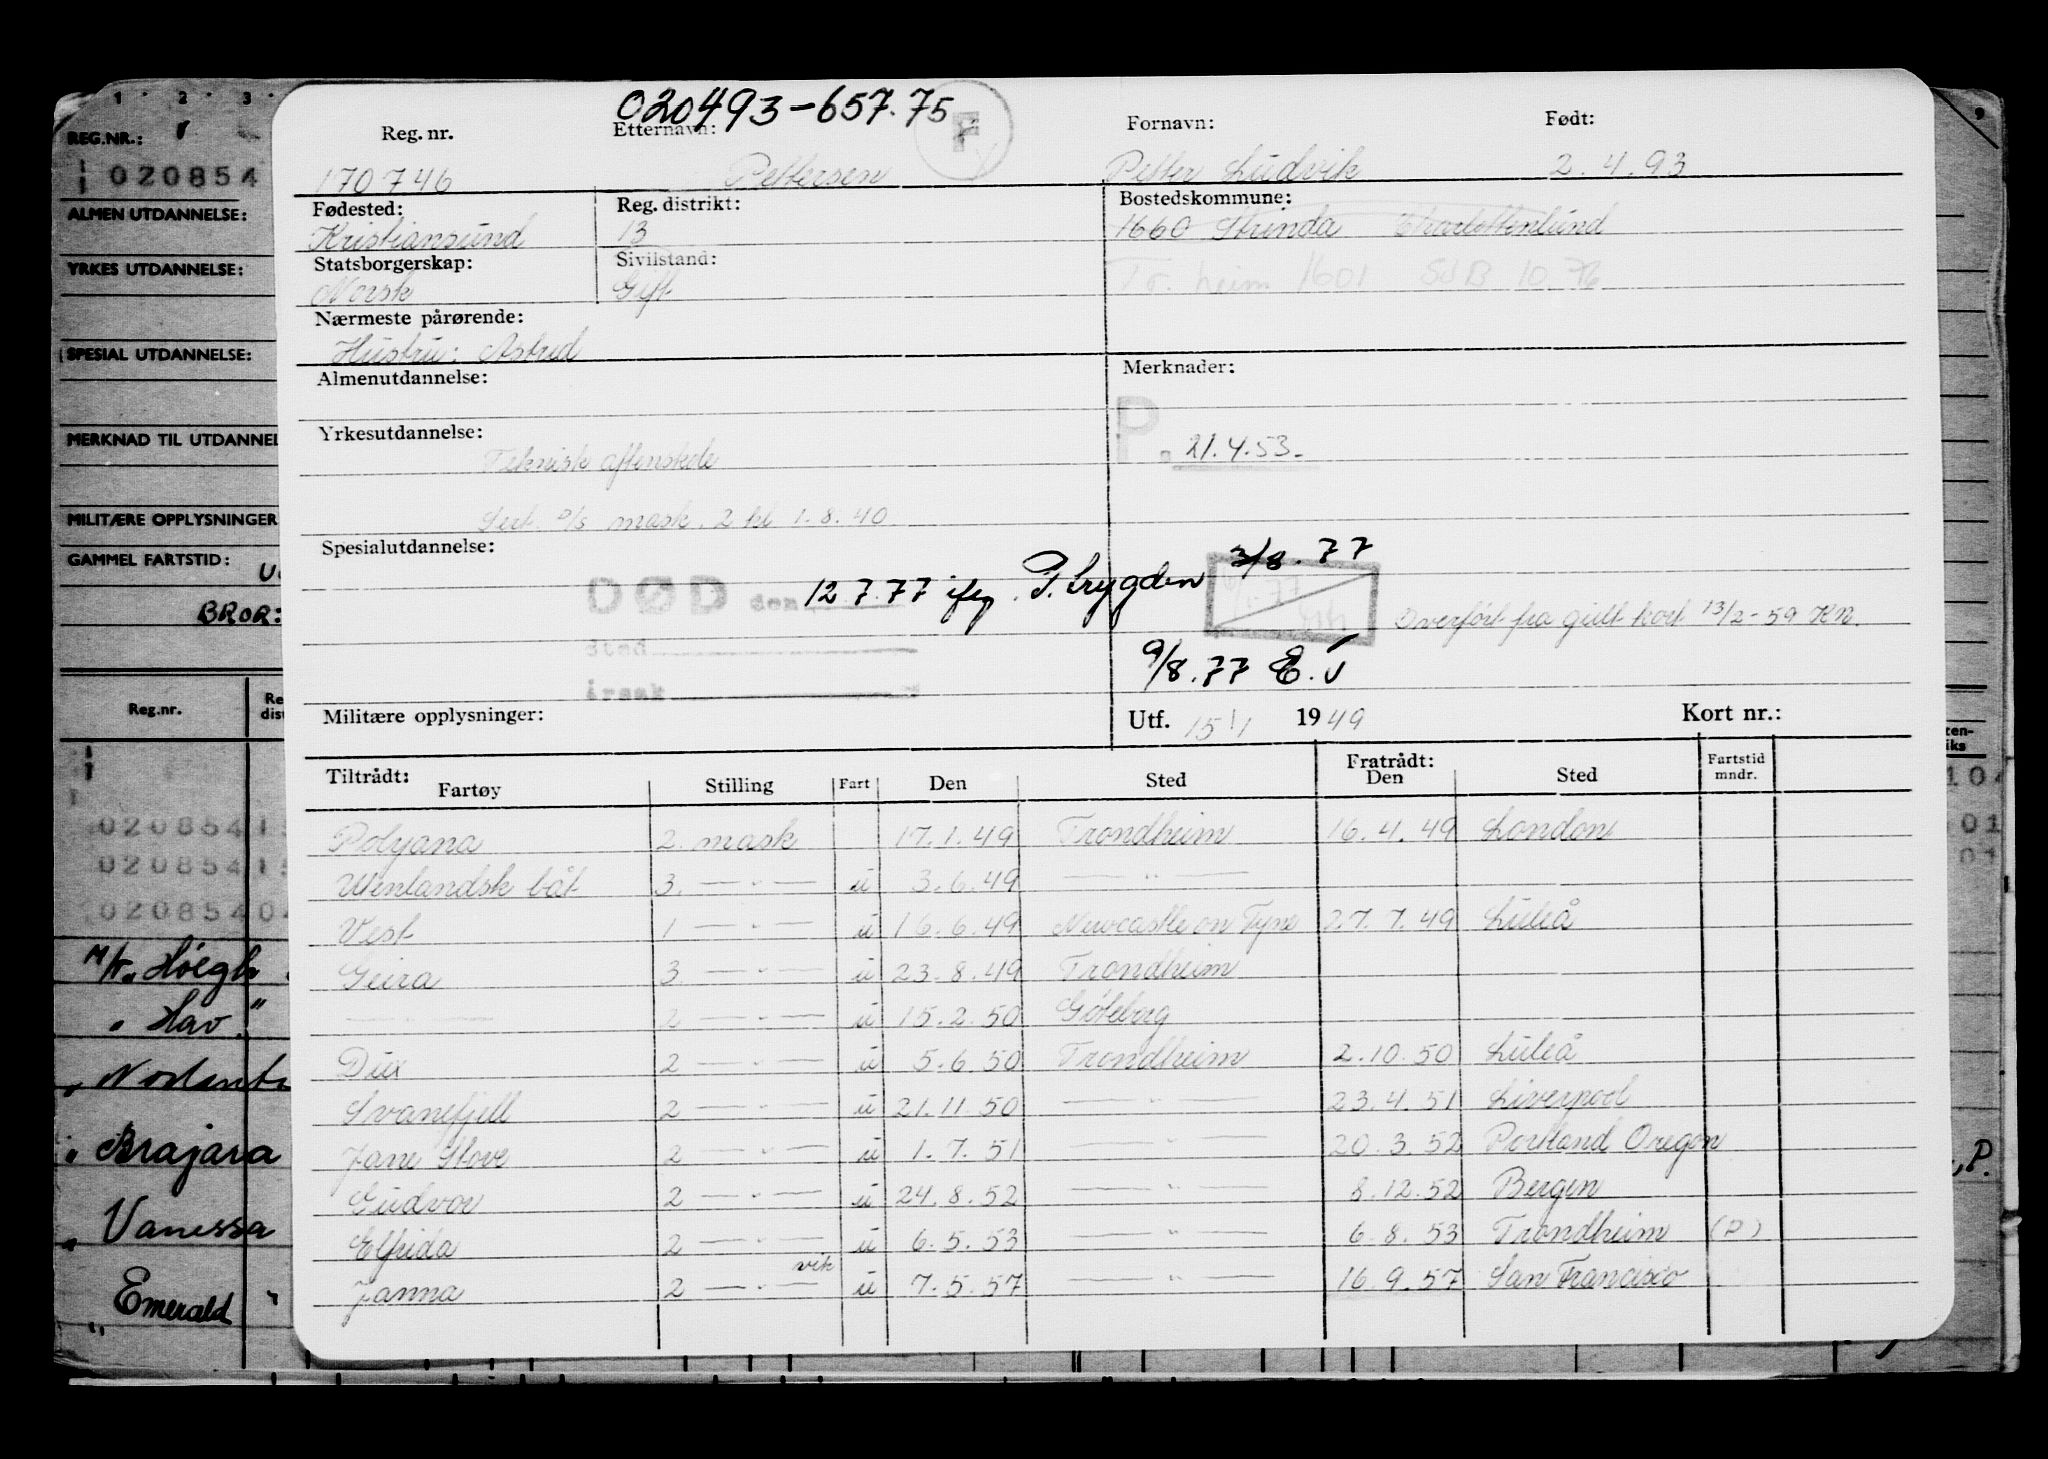 020493-657.75
F
Reg. nr. Etternavn: Fornavn: Født:
170746 Pettersen Petter Ludvik 2.4.93
Fødested: Reg. distrikt: Bostedskommune:
Kristiansund 13 1660 Strinda Charlottenlund
Statsborgerskap: Sivilstand:
Norsk Gift Tr. heim 1601 SdB 10.76
Nærmeste pårørende:
Hustru: Astrid
Almenutdannelse: Merknader:
Yrkesutdannelse: P. 21.4.53.
Teknisk aftenskole
Sert. D/S mask. 2 kl 1.8.40
Spesialutdannelse:
3/8.77
DØD den 12.7.77 iføg. P. trygden
Overført fra gult kort 13/2-59 KN.
sted
9/8.77 E.
årsak
Militære opplysninger: Utf. 15/1 1949 Kort nr.:
Tiltrådt: Fratrådt: Fartstid
Fartøy Stilling Fart Den Sted Den Sted mndr.
Polyana 2. mask 17.1.49 Trondheim 16.4.49 London
Utenlandsk båt 3. — " — u 3.6.49 — " —
Vest 1 — " — u 16.6.49 Newcastle on Tyne 27.7.49 Luleå
Geira 3 — " — u 23.8.49 Trondheim
— — — 2 — " — u 15.2.50 Göteborg
Dux 2 — " — u 5.6.50 Trondheim 2.10.50 Luleå
Svanefjell 2 — " — u 21.11.50 — " — 23.4.51 Liverpool
Jane Stove 2 — " — u 1.7.51 — " — 20.3.52 Portland Oregon
Gudvor 2 — " — u 24.8.52 — " — 8.12.52 Bergen
Elfrida 2 — " — u 6.5.53 — " — 6.8.53 Trondheim (P)
vik
Janna 2 — " — u 7.5.57 — " — 16.9.57 San Francisco
1 2 3
9
REG.NR.:
020854
ALMEN UTDANNELSE:
YRKES UTDANNELSE:
SPESIAL UTDANNELSE:
MERKNAD TIL UTDANNEL
MILITÆRE OPPLYSNINGER
GAMMEL FARTSTID:
BROR:
Reg.nr. Re
dis
020854
020854
020854
M/T. Höegh
" Hav."
" Brajara
" Vanessa
" Emerald "
, P.